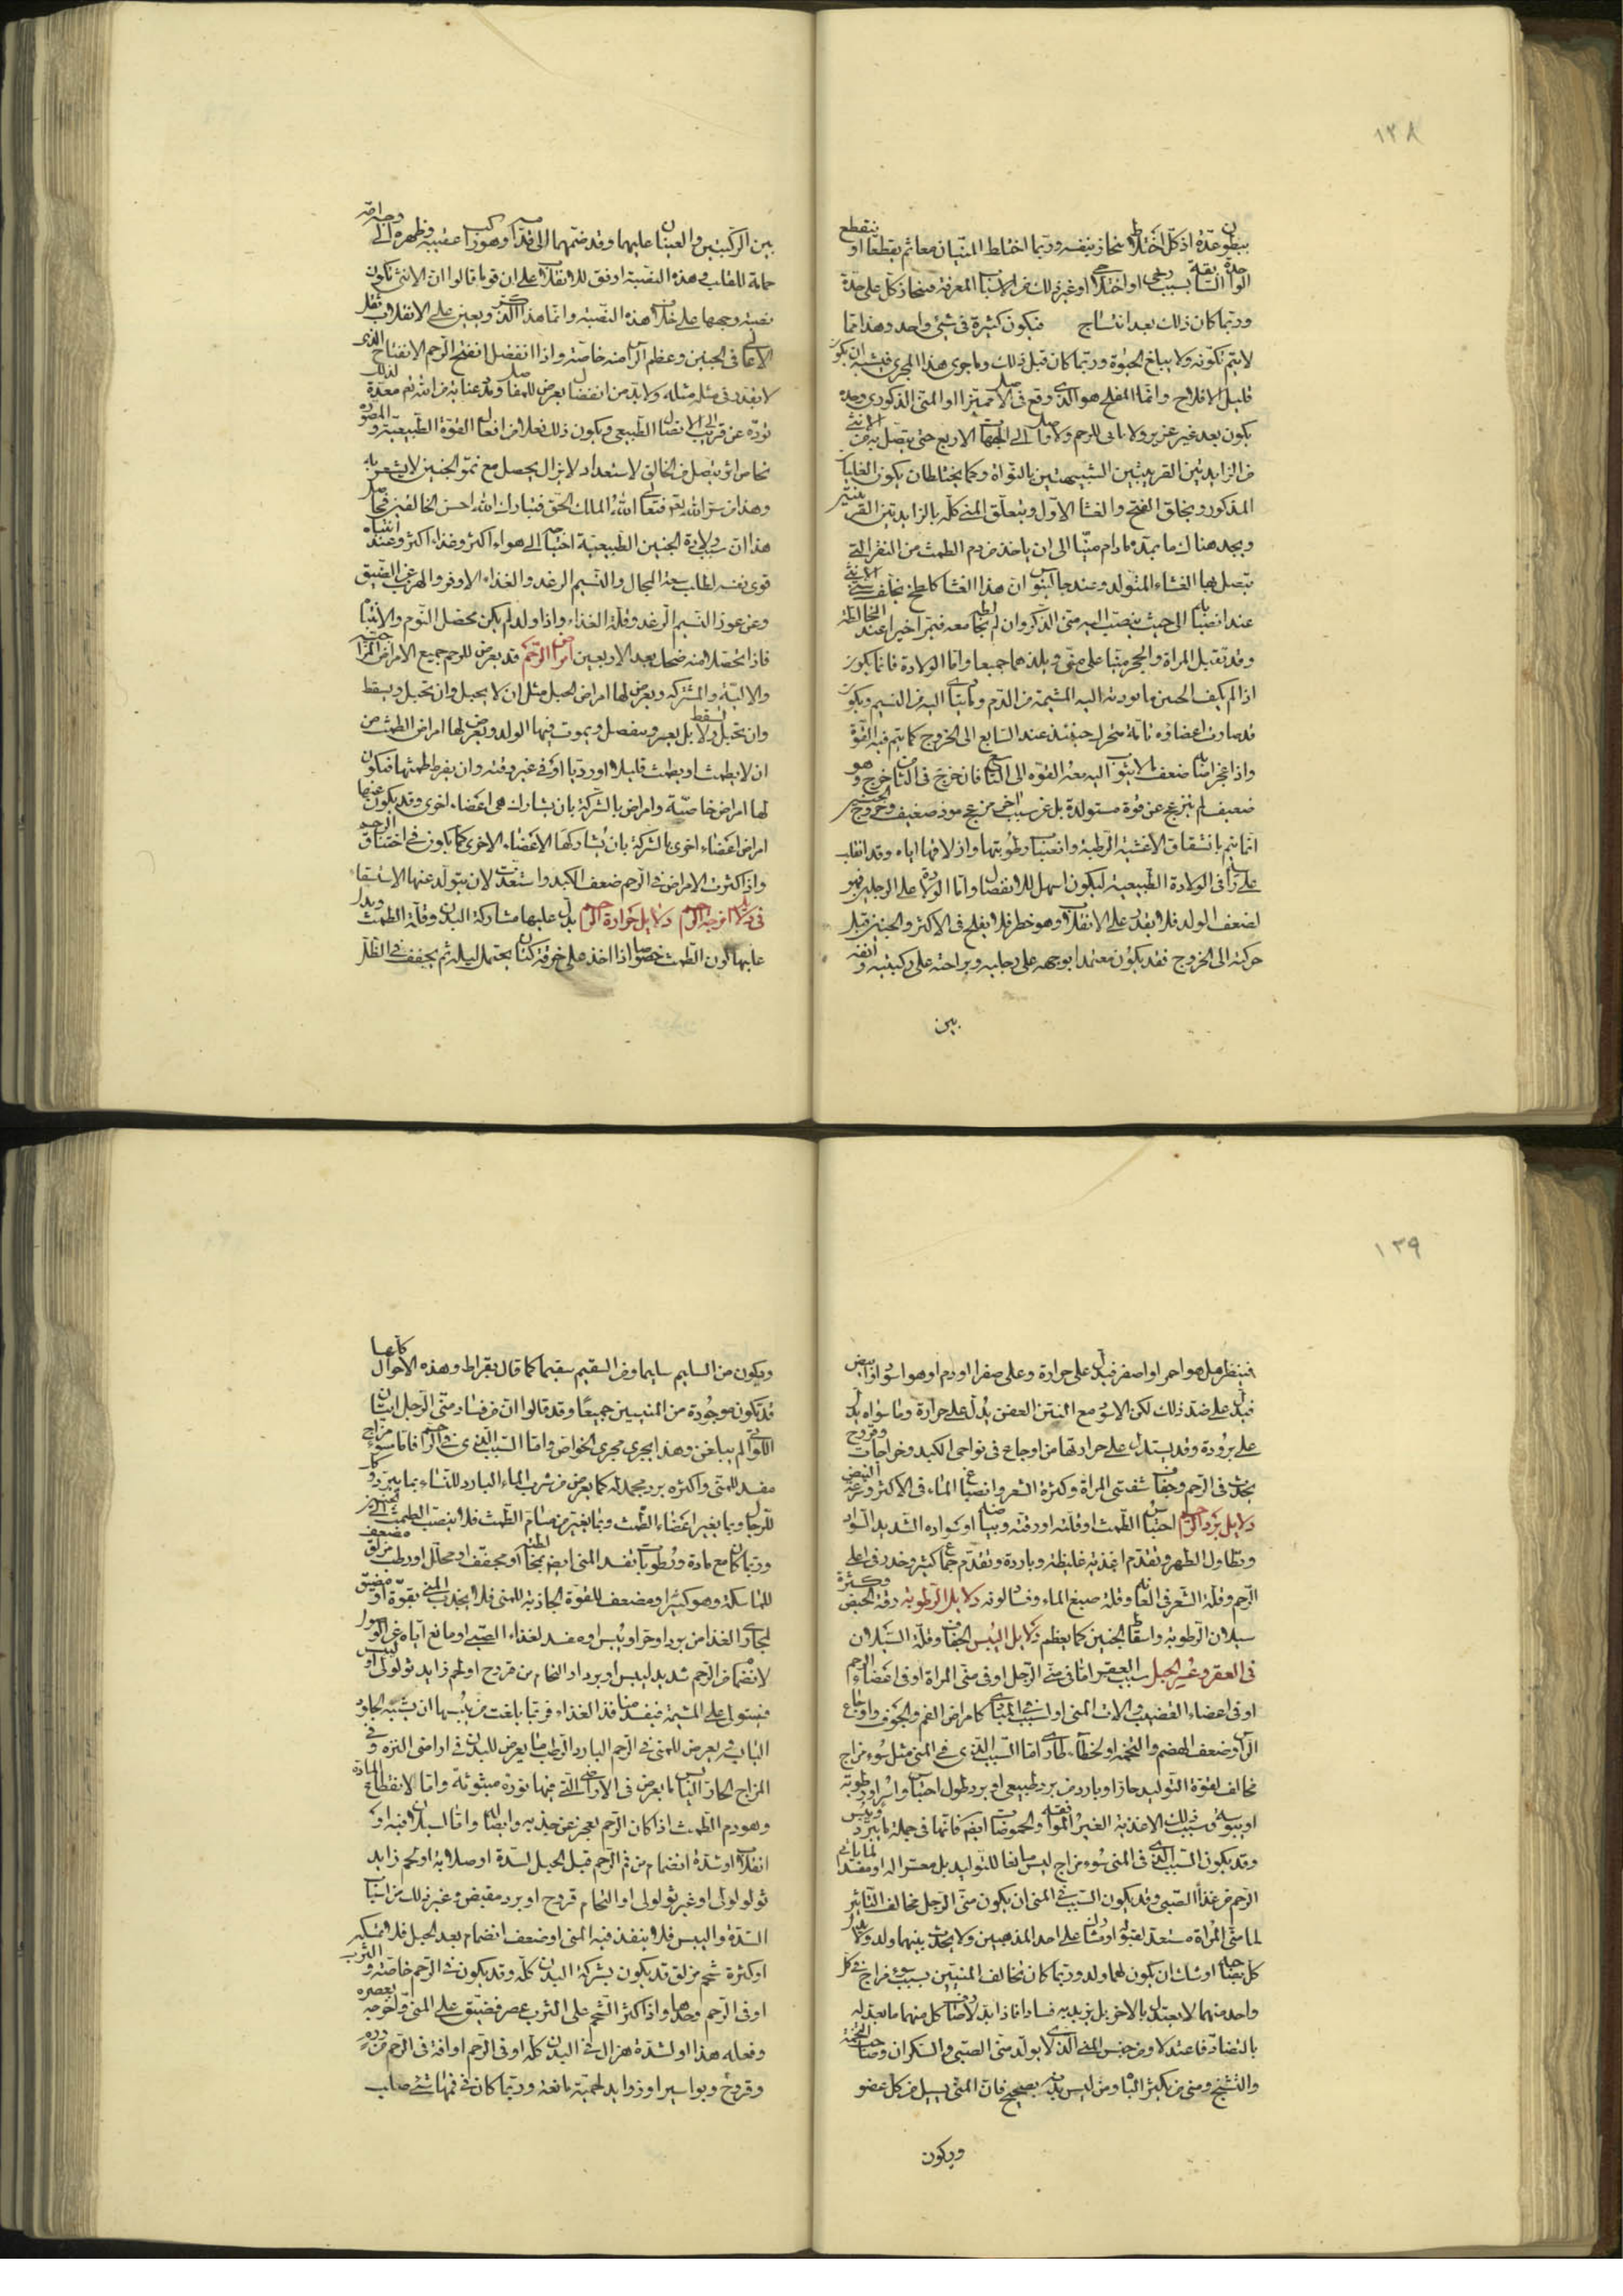 ١٣٨
ببطون عدة اذ كل اختلاط ينحاز بنفسه وربما اختلط المنيان معا ثم ينقطعا او ينقطع
الواحد السابق بسبب ريحى او اختلاجى او غير ذلك من الاسباب المعرفة فينحاز كل على حدة
وربما كان ذلك بعد انتساج فيكون كثيرة فى شئ واحد وهذا مما
لا يتم تكونه ولا يبلغ الحيوة وربما كان قبل ذلك وما جرى هذا المجرى فيشبه ان يكون
قليل الافلاح وانما المفلح هو الذى وقع فى الاصل متميزا او المنى الذكورى وحده
يكون بعد غير غزير ولا مالى للرحم ولا واصل الى الجهات الاربع حتى يتصل به منى الانثى
من الزايدتين القرنيتين الشبيهتين بالنواة وكما يختلطان يكون الغليان
المذكور ويخلق النفخ والغشا الاول ويتعلق المنى كله بالزايدتين القرنيتين
ويجد هناك ما يمده ما دام منيا الى ان ياخذ من دم الطمث من النقر التى
يتصل بها الغشاء المتولد وعند جالينوس ان هذا الغشا كلطخ يخلفه منى الانثى
عند انصبابه الى حيث ينصب اليه منى الذكر وان لم يخالطه معه فيتمازجا عند المخالطة
وقد تقبل المراة والحجر منيا على منى ويلد هما جميعا واما الولادة فانما يكون
اذا لم يكف الجنين ما تورده اليه المشيمة من الدم وما يتادى اليه من النسيم ويكون
قد صارت اعضاؤه تامة فيتحرك حينئذ عند السابع الى الخروج كما يتم فيه القوة
واذا عجز اصابه ضعف ما لا يثوب اليه معه القوة الى التاسع فان خرج فى الثامن خرج وهو
ضعيف لم ينزعج عن قوة مستولدة بل عن سبب اخر مزعج موذ ضعيف وخروج الجنين
انما يتم بانشقاق الاغشية الرطبة وانصباب رطوبتها وازلاقها اياه وقد انقلب
على راسه فى الولادة الطبيعية ليكون اسهل للانفصال واما الولادة على الرجلين فهو
لضعف الولد فلا يقدر على الانقلاب وهو خطر فلا يفلح فى الاكثر والجنين قبل
حركته الى الخروج فقد يكون معتمدا بوجهه على رجليه وبراحته على ركبتيه وانفه
بين
بين الركبتين والعينان عليهما وقد ضمهما الى قدامه وهو راكب عقبيه وظهره الى وجه امه
حماية للقلب وهذه النصبة اوفق للانقلاب على ان قوما قالوا ان الانثى يكون
نصبة وجهها على خلاف هذه النصبة وانما هذا للذكر ويعين على الانقلاب ثقل
الاعالى فى الجنين وعظم الراس منه خاصة واذا انفصل انفتح الرحم الانفتاح الذى
لا يقدر فى مثله مثله ولا بد من انفصال يعرض للمفاصل ومدد عناية من الله تعم معدة لذلك
نورده عن قريب الى الاتصال الطبيعى ويكون ذلك فعلا من افعال القوة الطبيعية والمصورة
بخاص اثر يتصل من الخالق لاستعداد لا يزال يحصل مع نمو الجنين لا يشعر به
وهذا من سر الله تعم فتعالى الله الملك الحق فتبارك الله احسن الخالقين فحاصل
هذا ان سبب ولادة الجنين الطبيعية احتياجه الى هواء اكثر وغذاء اكثر وعند انتباه
قوى نفسه لطلب سعة المجال والنسيم الرغد والغذاء الاوفر والهرب عن الضيق
وعن عوز النسيم الرغد وقلة الغذاء واذا ولد لم يكن يحصل النوم والانتباه
فاذا تحصلا منه ضحك بعد الاربعين امراض الرحم قد يعرض للرحم جميع الامراض المزاجية
والالية والمشتركة ويعرض لها امراض الحبل مثل ان لا يحبل وان يحبل ويسقط
وان يحبل ولا يسقط بل يعسر وينفصل ويموت فيها الولد ويعرض لها امراض الطمث من
ان لا يطمث او يطمث قليلا او رديا او فى غير وقته وان يفرط طمثها فيكون
لها امراض خاصية وامراض بالشركة بان يشارك هى اعضاء اخرى وقد يكون عنها
امراض اعضاء اخرى بالشركة بان تشاركها الاعضاء الاخرى كما يكون فى اختناق الرحم
واذا كثرت الامراض فى الرحم ضعف الكبد واستعدت لان يتولد عنها الاستسقاء
فى دلايل امزجة الرحم دلايل حرارة الرحم يدل عليها مشاركة البدن وقلة الطمث ويدل
عليها لون الطمث خصوصا اذا اخذ على خرقة كتان يحتمل ليلة ثم يجفف فى الظل
١٣٩
فينظر هل هو احمر او اصفر فيدل على حرارة وعلى صفرا او دم او هو اسود او ابيض
فيدل على ضد ذلك لكن الاسود مع النتن العفن يدل على حرارة وما سواه يدل
على برودة وقد يستدل على حرارتها من اوجاع فى نواحى الكبد وخراجات وقروح
يحدث فى الرحم وجفاف شفتى المراة وكثرة الشعر وانصباغ الماء فى الاكثر وسرعة النبض
دلايل برد الرحم احتباس الطمث او قلته او رقته وبياضه او سواده الشديد السوداوى
وتطاول الطهر وتقدم اغذية غليظة وباردة وتقدم جماع كثير وخدر فى اعلى
الرحم وقلة الشعر فى العانة وقلة صبغ الماء وفساد لونه دلايل الرطوبة رقة الحيض وكثرة
سيلان الرطوبة واسقاط الجنين كما يعظم دلايل اليبس الجفاف وقلة السيلان
فى العقر وعسر الحبل سبب العقر اما فى منى الرجل او فى منى المراة او فى اعضاء الرحم
او فى اعضاء القضيب والات المنى او السبب فى المبادى كامراض الغم والخوف واوجاع
الراس وضعف الهضم والتخمة او لخطاء طارى اما السبب الذى فى المنى مثل سوء مزاج
مخالف لقوة التوليد حار او بارد من برد طبيعى او برد طول احتباس واسر او رطوبة
او يبوسة وسبب ذلك الاغذية الغير الموافقة والحموضات ايضا فانها فى جملة ما يبرد وييبس
وقد يكون السبب الذى فى المنى سوء مزاج ليس مانعا للتوليد بل معسرا له او مفسدا لما ياتى
الرحم من غذاء الصبى وقد يكون السبب فى المنى ان يكون منى الرجل مخالف التاثير
لما منى المراة مستعد لقبوله او مشاركا على احد المذهبين ولا يحدث بينهما ولد ولو بدل
كل صاحبه اوشك ان يكون لهما ولد وربما كان تخالف المنيين بسبب سوء مزاج فى كل
واحد منهما لا يعتدل بالاخر بل يزيد به فسادا فاذا بدلا صادف كل منهما ما يعدله
بالتضاد فاعتدلا ومن جنس المنى الذى لا يولد منى الصبى والسكران وصاحب التخمة
والشيخ ومنى من يكثر الباه ومن ليس بدنه بصحيح فان المنى يسيل من كل عضو
ويكون
ويكون من السليم سليما ومن السقيم سقيما كما قال بقراط وهذه الاحوال كلها
قد تكون موجودة من المنيين جميعا وقد قالوا ان من فساد منى الرجل اتيان
اللواتى لم يبلغن وهذا يجرى مجرى الخواص واما السبب الذى فى الرحم فاما سوء مزاج
مفسد للمنى واكثره برد مجمد له كما يعرض من شرب الماء البارد للنساء بما يبرد وكذا
للرجال وبما يغير اعضاء الطمث وبما يغير من مسام الطمث فلا ينصب الطمث الى الجنين
وربما كان مع مادة ورطوبات تفسد المنى ايضا بمخالطته او مجفف او محلل او رطب مزلق مضعف
للماسكة وهو كثير او مضعف للقوة الجاذبة للمنى فلا يجذب المنى بقوة او مضيق
لمجارى الغذا من برد او حر او يبس او مفسد لغذاء الصبى او مانع اياه عن الوصول
لانضمام من الرحم شديد ليبس او برد او التحام من قروح او لحم زايد ثولولى او ليبس
فيستولى على المشيمة فيفسد منافذ الغذاء فربما بلغت من يبسها ان يشبه الجلود
اليابسة ويعرض للمنى فى الرحم البارد الرطب ما يعرض للبذر فى اراضى النزة وفى
المزاج الحار اليابس ما يعرض فى الاراضى التى فيها نورة مبثوثة واما لانقطاع المادة
وهو دم الطمث اذا كان الرحم يعجز عن جذبه وايصاله واما لميلان فيه او
انقلاب او شدة انضمام من فم الرحم قبل الحبل لسدة او صلابة او لحم زايد
ثولولى او غير ثولولى او التحام قروح او برد مقبض وغير ذلك من اسباب
السدة واليبس فلا ينفذ فيه المنى او ضعف انضمام بعد الحبل فلا تمسكه
او كثرة شحم مزلق قد يكون بشركة البدن كله وقد يكون فى الرحم خاصة والثرب
او فى الرحم وحدها واذا كثر الشحم على الثرب عصر فضيق على المنى واخرجه بعصره
وفعله هذا او لشدة هزال فى البدن كله او فى الرحم او افة فى الرحم من ورم
وقروح وبواسير او زوايد لحمية مانعة وربما كان فى فمها شئ صلب